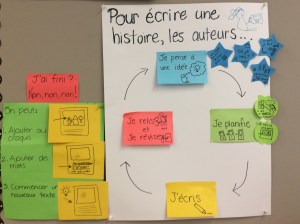 Pour écrire une
histoire, les auteurs...
Je pense à
une idée
Je planifie
J'écris
Je relis
et
Je révise
J'ai fini?
Non, non, non!
On peut:
1. Ajouter au
croquis
2. Ajouter des
mots
3. Commencer un
nouveau texte